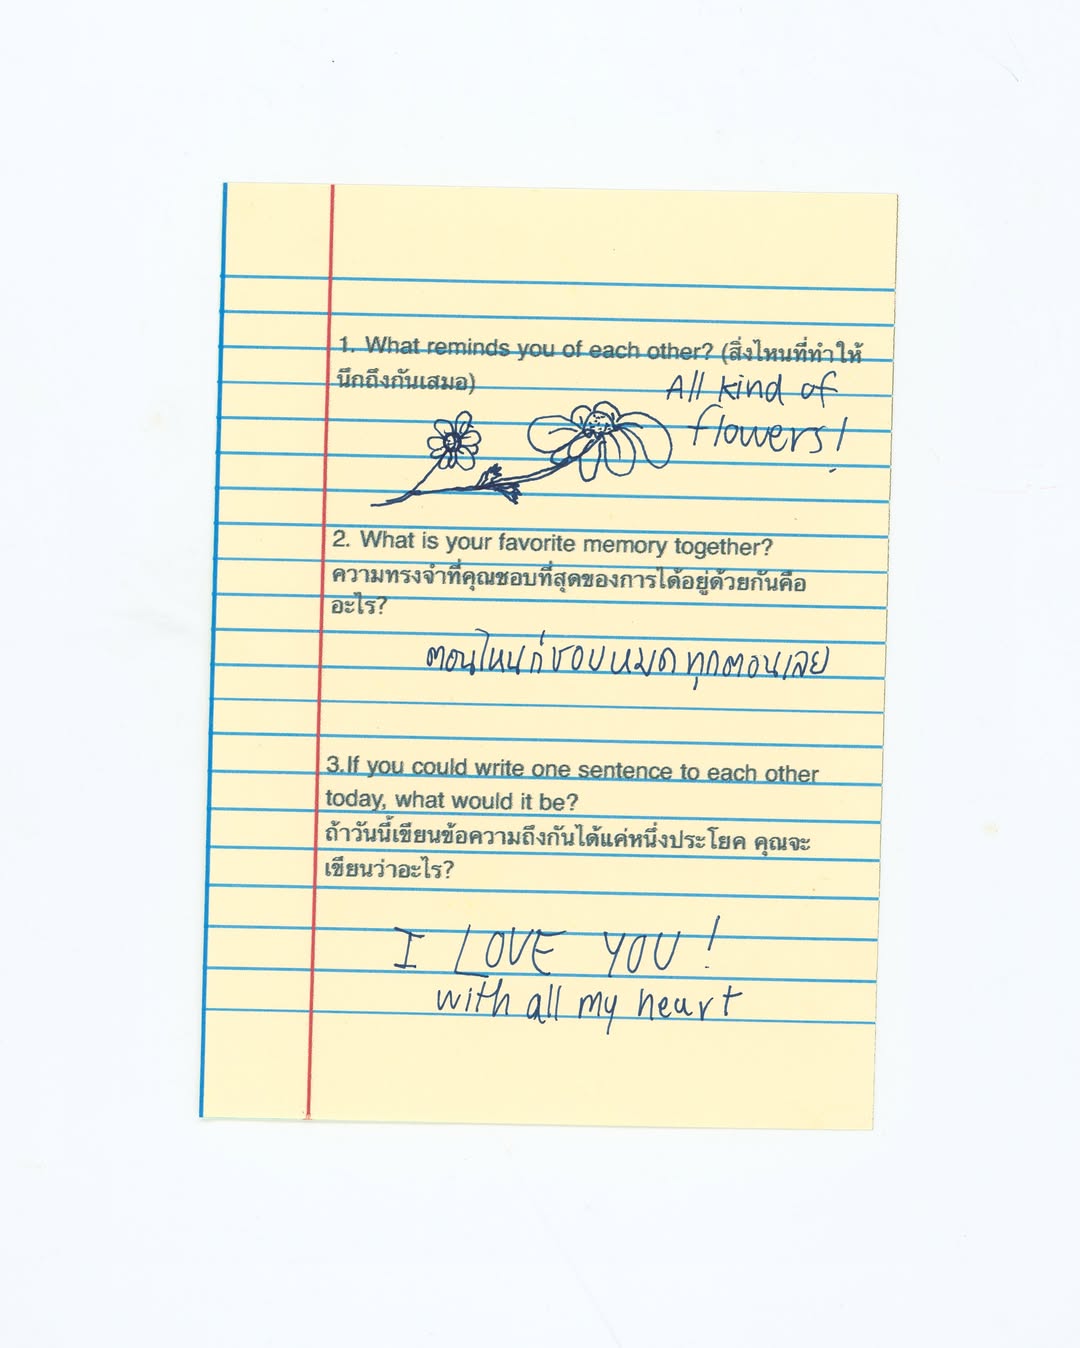 1. What reminds you of each other? (สิ่งไหนที่ทำให้
นึกถึงกันเสมอ)
All kind of
flowers!
2. What is your favorite memory together?
ความทรงจำที่คุณชอบที่สุดของการได้อยู่ด้วยกันคือ
อะไร?
ตอนไหนก่ชอบหมดทุกตอนเลย
3.If you could write one sentence to each other
today, what would it be?
ถ้าวันนี้เขียนข้อความถึงกันได้แค่หนึ่งประโยค คุณจะ
เขียนว่าอะไร?
I LOVE YOU!
with all my heart